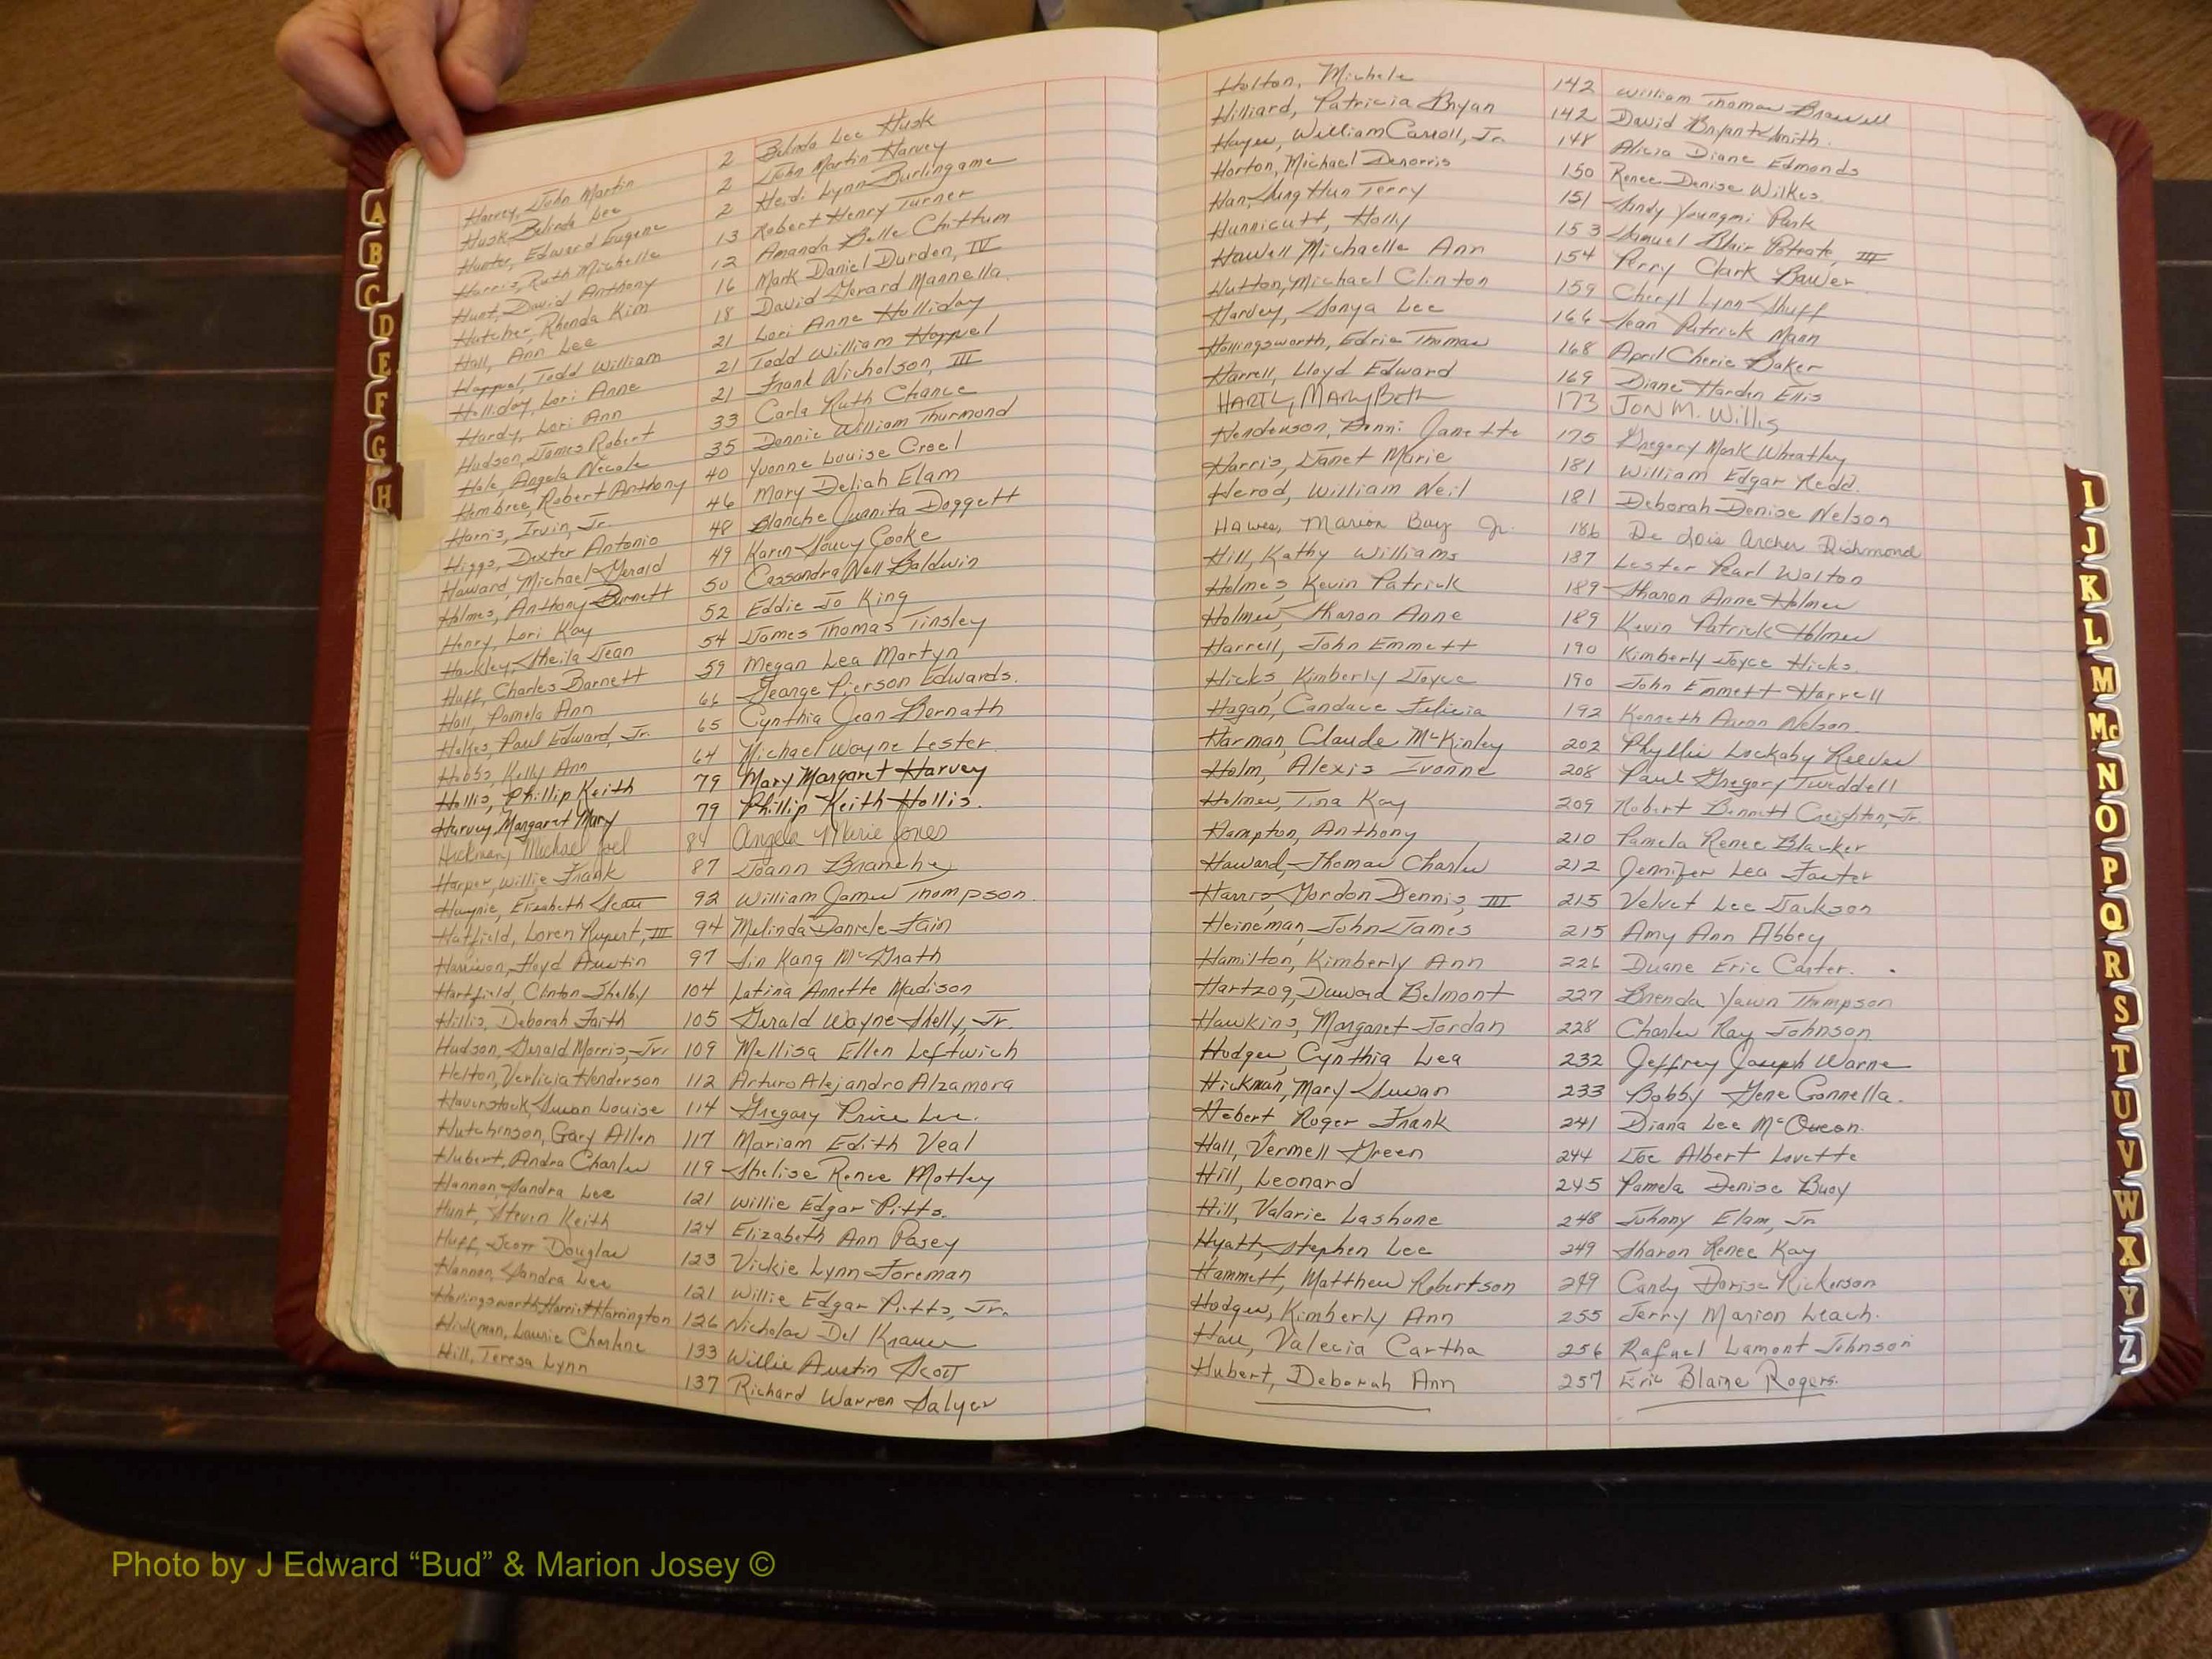 Harvey, John Martin 2 Belinda Lee Husk
Husk Belinda Lee 2 John Martin Harvey
Hunter, Edward Eugene 2 Heidi Lynn Burlingame
Harris, Ruth Michelle 13 Robert Henry Turner
Hunt, David Anthony 12 Amanda Belle Chittum
Hatcher, Rhonda Kim 16 Mark Daniel Durden, IV
Hall, Ann Lee 18 David Gerard Mannella.
Happel, Todd William 21 Lori Anne Holliday
Holliday, Lori Anne 21 Todd William Happel
Hardy, Lori Ann 21 Frank Nicholson, III
Hudson, James Robert 33 Carla Ruth Chance
Hale, Angela Necole 35 Donnie William Thurmond
Hembree, Robert Anthony 40 Yvonne Louise Croel
Harris, Irvin, Jr. 46 Mary Deliah Elam
Higgs, Dexter Antonio 48 Blanche Juanita Doggett
Howard, Michael Gerald 49 Karen Cooke
Holmes, Anthony Burnett 50 Cassandra Nell Baldwin
Henry, Lori Kay 52 Eddie Jo King
Hackley, Sheila Jean 54 James Thomas Tinsley
Huff, Charles Barnett 59 Megan Lea Martyn
Hall, Pamela Ann 66 George Pierson Edwards.
Hakes, Paul Edward, Jr. 65 Cynthia Jean Bernath
Hobbs, Kelly Ann 64 Michael Wayne Lester
Hollis, Phillip Keith 79 Mary Margaret Harvey
Harvey, Margaret Mary 79 Phillip Keith Hollis.
Hickman, Michael Joel 84 Angela Marie Jones
Harper, Willie Frank 87 Joann Branche
Haynie, Elizabeth Jean 92 William James Thompson.
Hatfield, Loren Rupert, III 94 Melinda Daniele Fain
Harrison, Floyd Austin 97 Jin Kang McGrath
Hartfield, Clinton Shelby 104 Latina Annette Madison
Hillis, Deborah Faith 105 Gerald Wayne Shelly, Jr.
Hudson, Gerald Morris, Jr. 109 Mellisa Ellen Leftwich
Helton, Verlicia Henderson 112 Arturo Alejandro Alzamora
Havenstock, Susan Louise 114 Gregory Price Lee.
Hutchinson, Gary Allen 117 Mariam Edith Veal
Hubert, Andra Charles 119 Shelise Renee Motley
Hannon, Sandra Lee 121 Willie Edgar Pitts.
Hunt, Steven Keith 124 Elizabeth Ann Pasey
Huff, Scott Douglas 123 Vickie Lynn Foreman
Hannon, Sandra Lee 121 Willie Edgar Pitts, Jr.
Hollingsworth, Harriet Harrington 126 Nicholas Del Krause
Hickman, Laurie Charlene 133 Willie Austin Scott
Hill, Teresa Lynn 137 Richard Warren Salyer
Holton, Michele 142 William Thomas Braswell
Hilliard, Patricia Bryan 142 David Bryant Smith.
Hayes, William Carroll, Jr. 148 Alicia Diane Edmonds
Horton, Michael Denorris 150 Renee Denise Wilkes
Han, Sung Hun Terry 151 Sandy Youngmi Park
Hunnicutt, Holly 153 Samuel Blair Poteate, III
Howell Michaelle Ann 154 Perry Clark Bawer
Hutton, Michael Clinton 159 Cheryl Lynn Shuff
Hardey, Sonya Lee 166 Sean Patrick Mann
Hollingsworth, Edric Thomas 168 April Cherie Baker
Harrell, Lloyd Edward 169 Diane Harden Ellis
HARTL, MARY Beth 173 JON M. Willis
Henderson, Penni Janette 175 Gregory Mark Wheatley
Harris, Janet Marie 181 William Edgar Redd.
Herod, William Neil 181 Deborah Denise Nelson
Hawes, Marion Bay Jr. 186 De Lois Archer Richmond
Hill, Kathy Williams 187 Lester Pearl Walton
Holmes, Kevin Patrick 189 Sharon Anne Holmes
Holmes, Sharon Anne 189 Kevin Patrick Holmes
Harrell, John Emmett 190 Kimberly Joyce Hicks
Hicks Kimberly Joyce 190 John Emmett Harrell
Hagan, Candace Felicia 192 Kenneth Aaron Nelson
Harman, Claude McKinley 202 Phyllis Lockaby Reeves
Holm, Alexis Ivonne 208 Paul Gregory Tweddell
Holmes, Tina Kay 209 Robert Bennett Creighton, Jr.
Hampton, Anthony 210 Pamela Renee Blacker
Howard, Thomas Charles 212 Jennifer Lea Foster
Harris, Gordon Dennis, III 215 Velvet Lee Jackson
Heineman, John James 215 Amy Ann Abbey
Hamilton, Kimberly Ann 226 Duane Eric Carter.
Hartzog, Duward Belmont 227 Brenda Yawn Thompson
Hawkins, Margaret Jordan 228 Charles Ray Johnson
Hodges, Cynthia Lea 232 Jeffrey Joseph Warne
Hickman, Mary Susan 233 Bobby Gene Gonnella.
Hebert Roger Frank 241 Diana Lee McQueen.
Hall, Vermell Green 244 Joe Albert Lovette
Hill, Leonard 245 Pamela Denise Buoy
Hill, Valarie Lashone 248 Johnny Elam, Jr
Hyatt, Stephen Lee 249 Sharon Renee Kay
Hammett, Matthew Robertson 249 Candy Dorise Rickerson
Hodges, Kimberly Ann 255 Jerry Marion Leach.
Hall, Valecia Cartha 256 Rafael Lamont Johnson
Hubert, Deborah Ann 257 Eric Blaine Rogers.
A
B
C
D
E
F
G
H
I
J
K
L
M
Mc
N
O
P
Q
R
S
T
U
V
W
X
Y
Z
Photo by J Edward “Bud” & Marion Josey ©